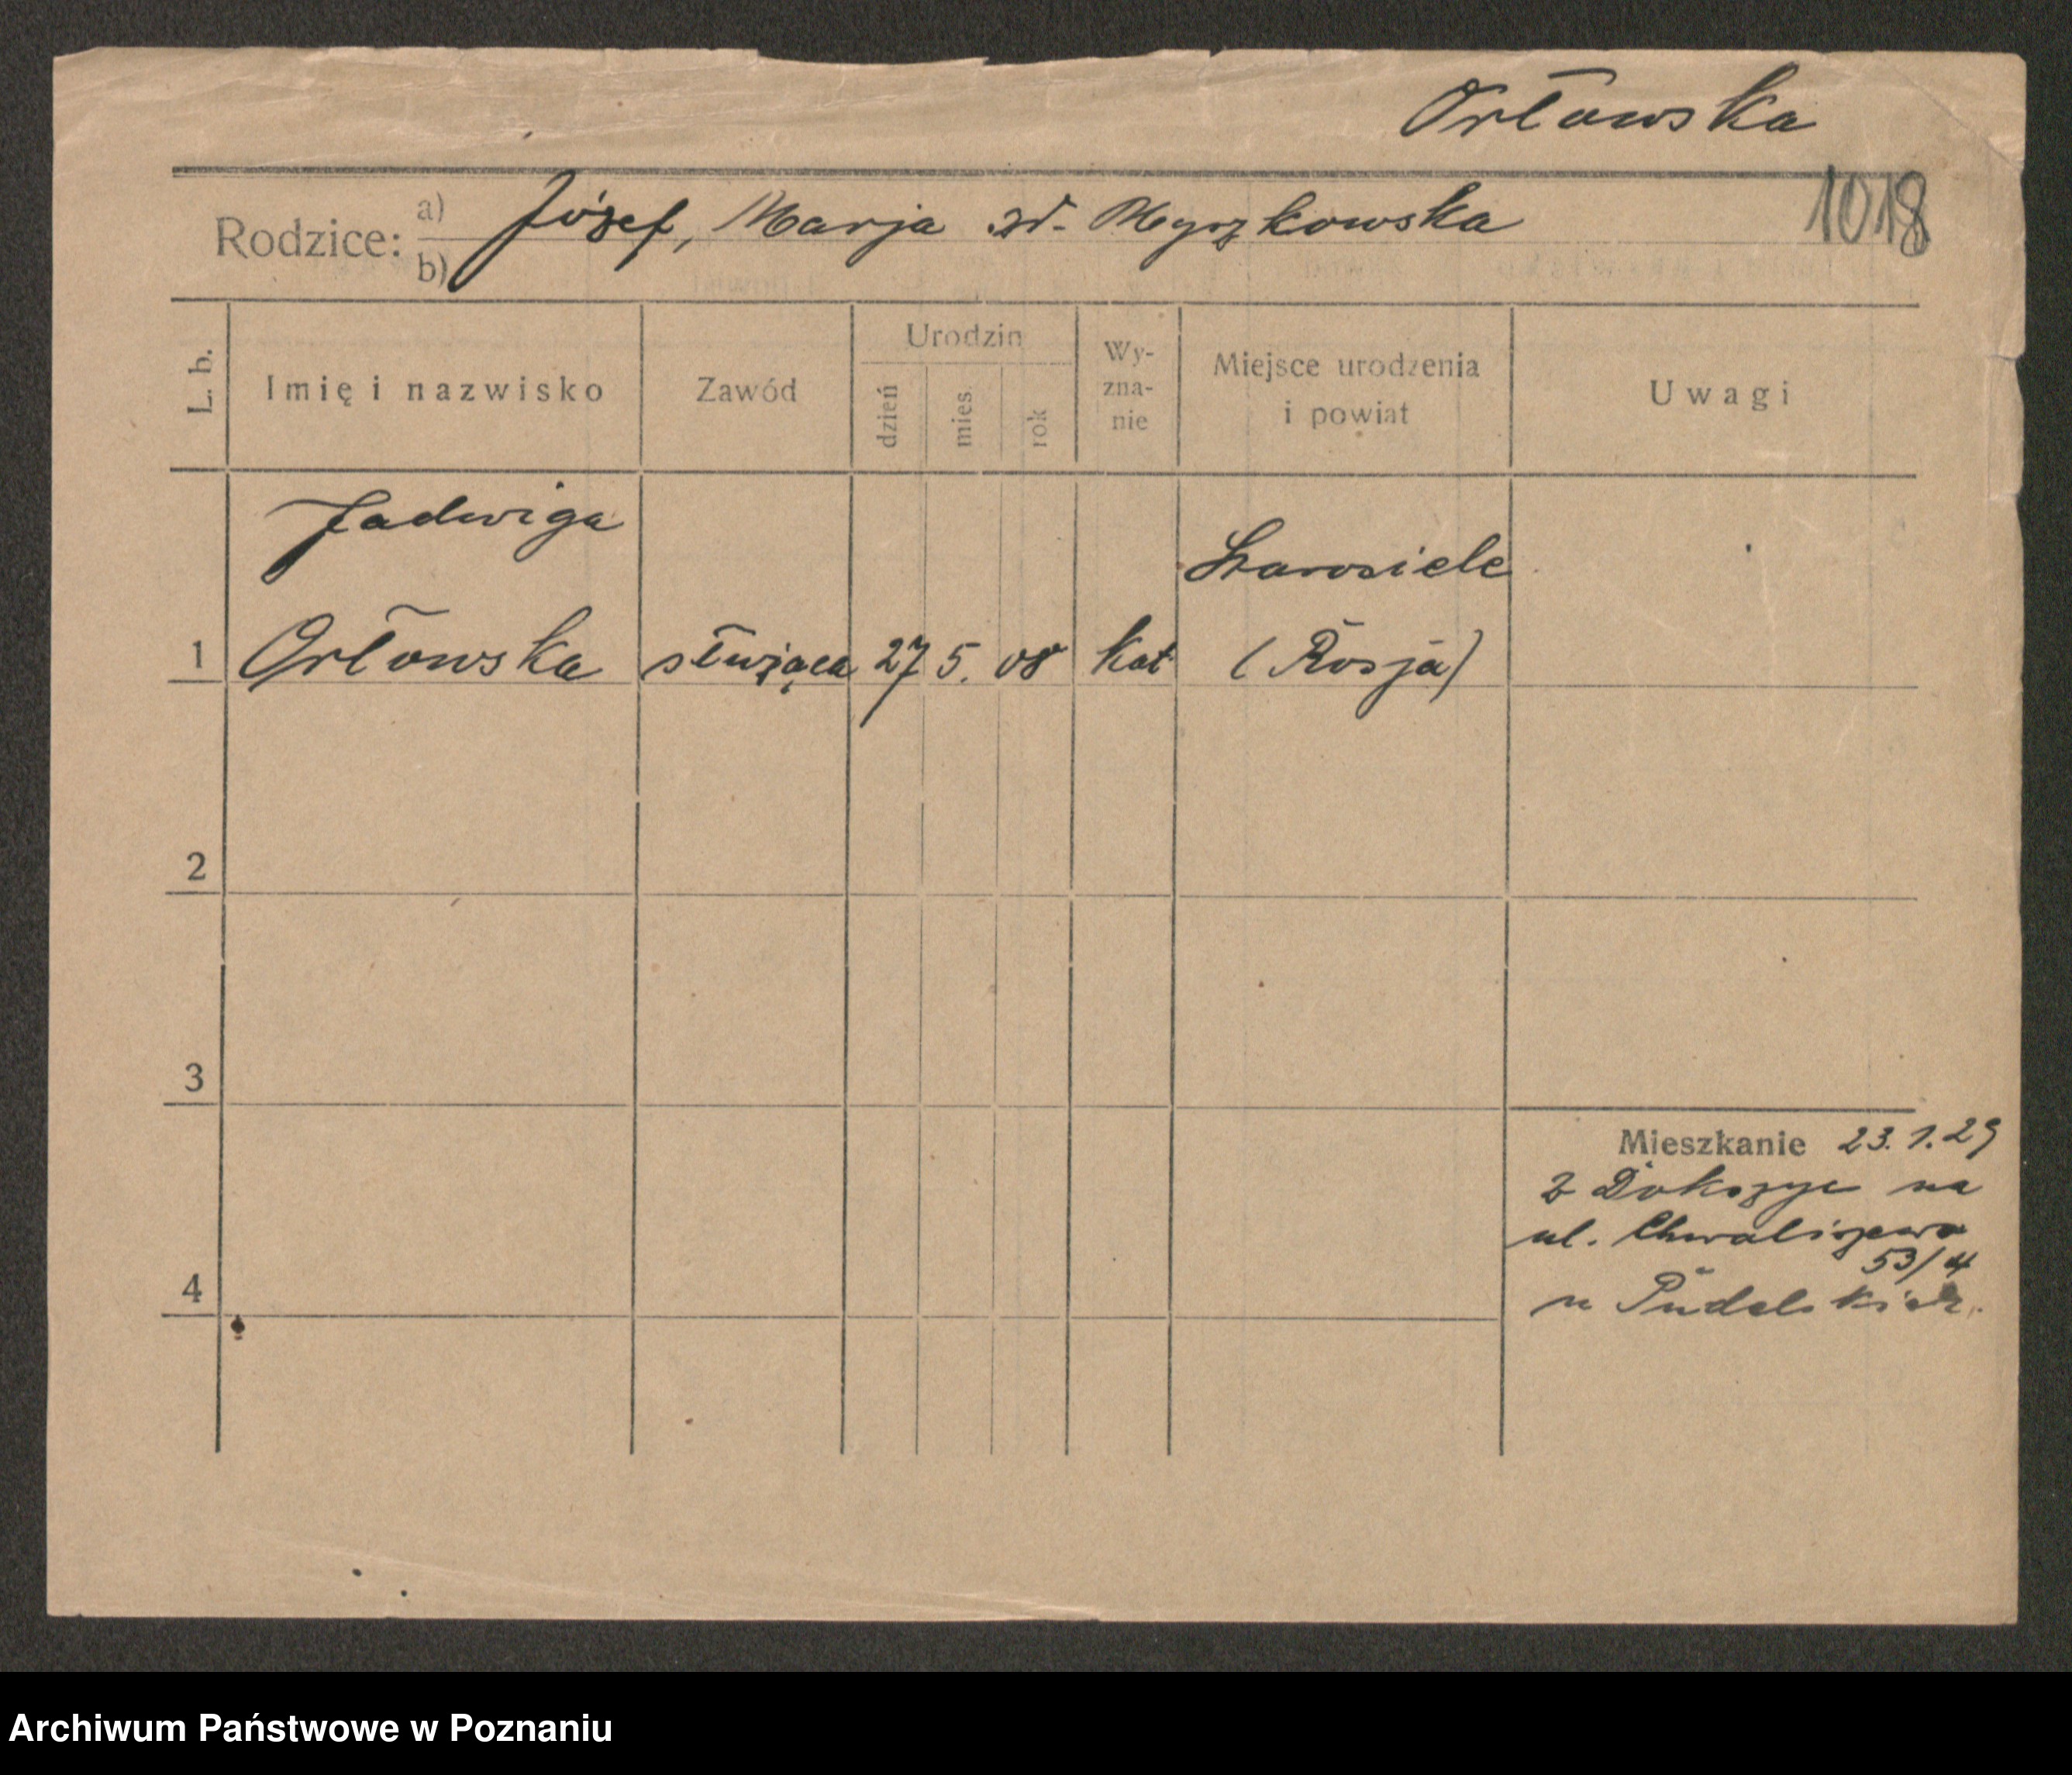 Orłowska
1018
Rodzice: a) Józef, Marja zd. Myszkowska
b)
L. b.
Imię i nazwisko
Zawód
Urodzin
dzień
mies.
rok
Wy-
zna-
nie
Miejsce urodzenia
i powiat
Uwagi
Jadwiga
Starosiele
1 Orłowska służąca 27 5. 08 kat (Rosja)
2
3
4
Mieszkanie 23.1.29
z Dokszyc na
ul. Chwaliszewo
53/4
u Pudelskich.
Archiwum Państwowe w Poznaniu